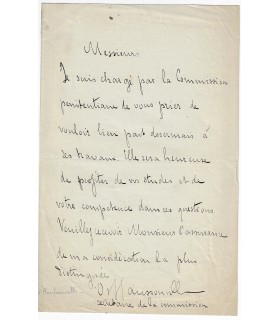 Messieurs
Je suis chargé par la Commission
penitentiaire de vous prier de
vouloir bien part desormais à
ses travaux. Elle sera heureuse
de profiter de vos études et de
votre competence dans ces questions
Veuillez recevoir Monsieur l'assurance
de ma considération la plus
distinguée
O d'Haussonville
secretaire de la commission